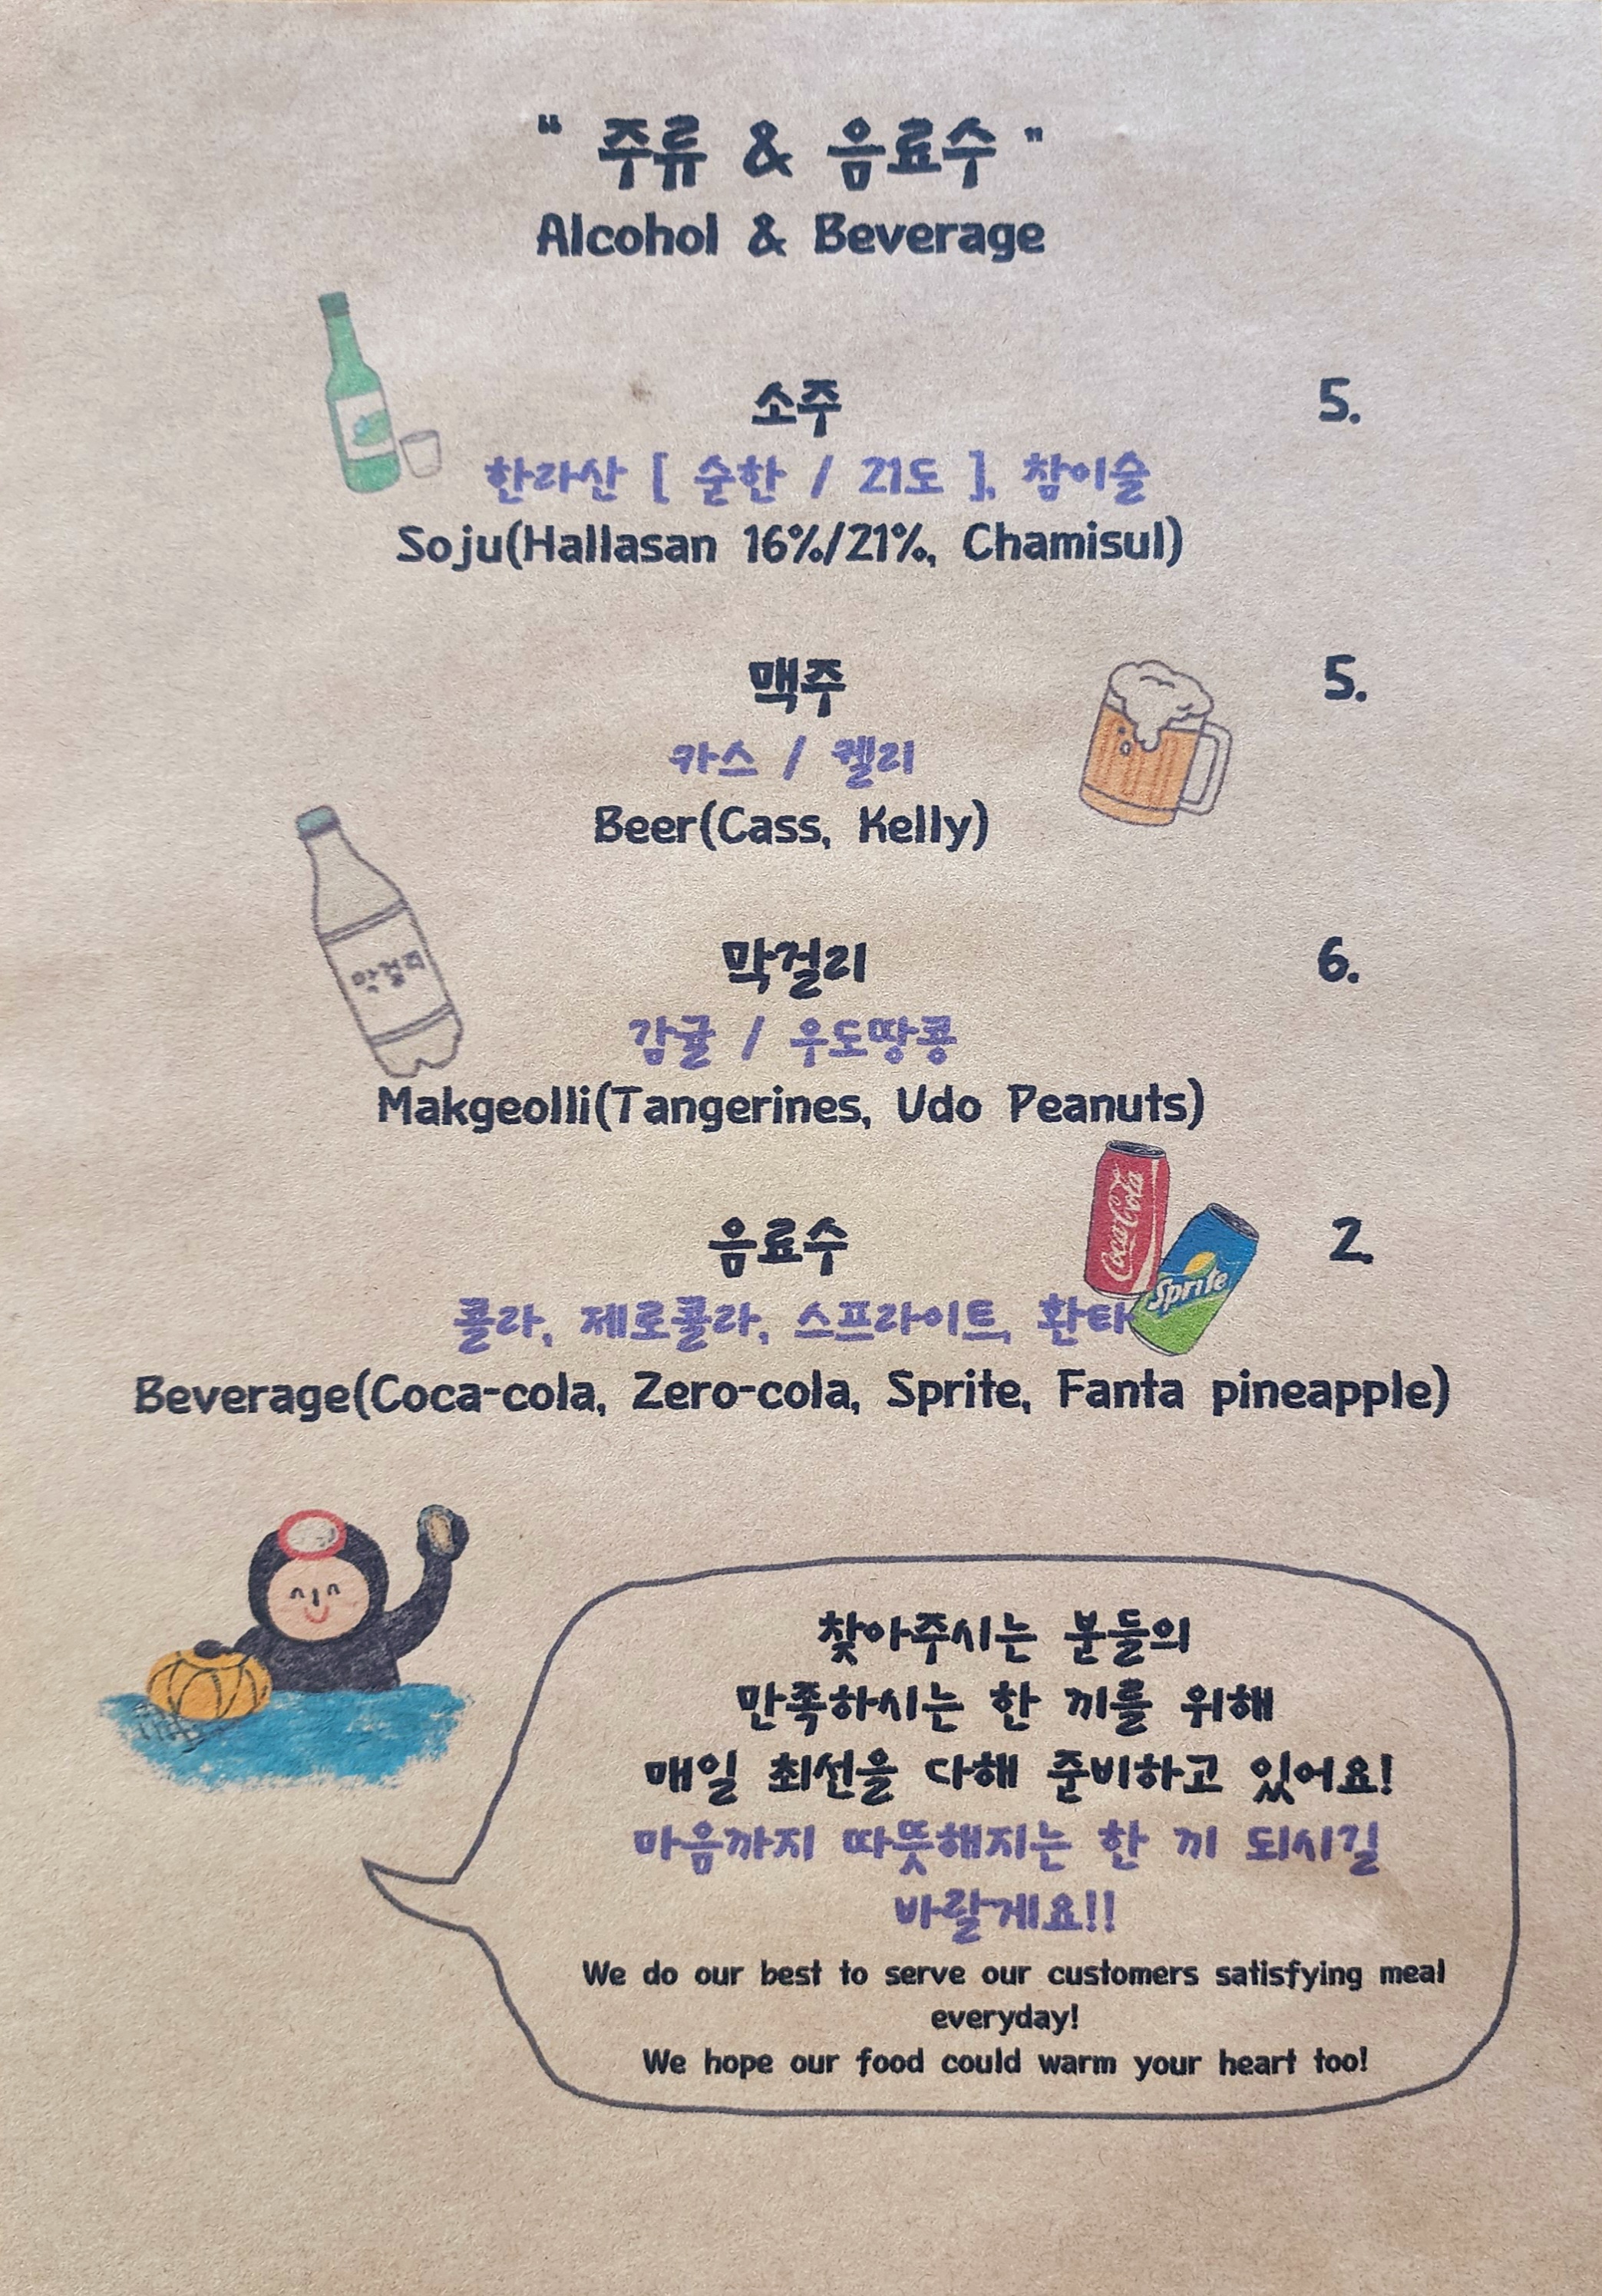 “ 주류 & 음료수 ”
Alcohol & Beverage
소주 5.
한라산 [ 순한 / 21도 ], 참이슬
Soju(Hallasan 16%/21%, Chamisul)
맥주 5.
카스 / 켈리
Beer(Cass, Kelly)
막걸리
막걸리 6.
감귤 / 우도땅콩
Makgeolli(Tangerines, Udo Peanuts)
Coca-Cola
Sprite
음료수 2.
콜라, 제로콜라, 스프라이트, 환타
Beverage(Coca-cola, Zero-cola, Sprite, Fanta pineapple)
찾아주시는 분들의
만족하시는 한 끼를 위해
매일 최선을 다해 준비하고 있어요!
마음까지 따뜻해지는 한 끼 되시길
바랄게요!!
We do our best to serve our customers satisfying meal
everyday!
We hope our food could warm your heart too!